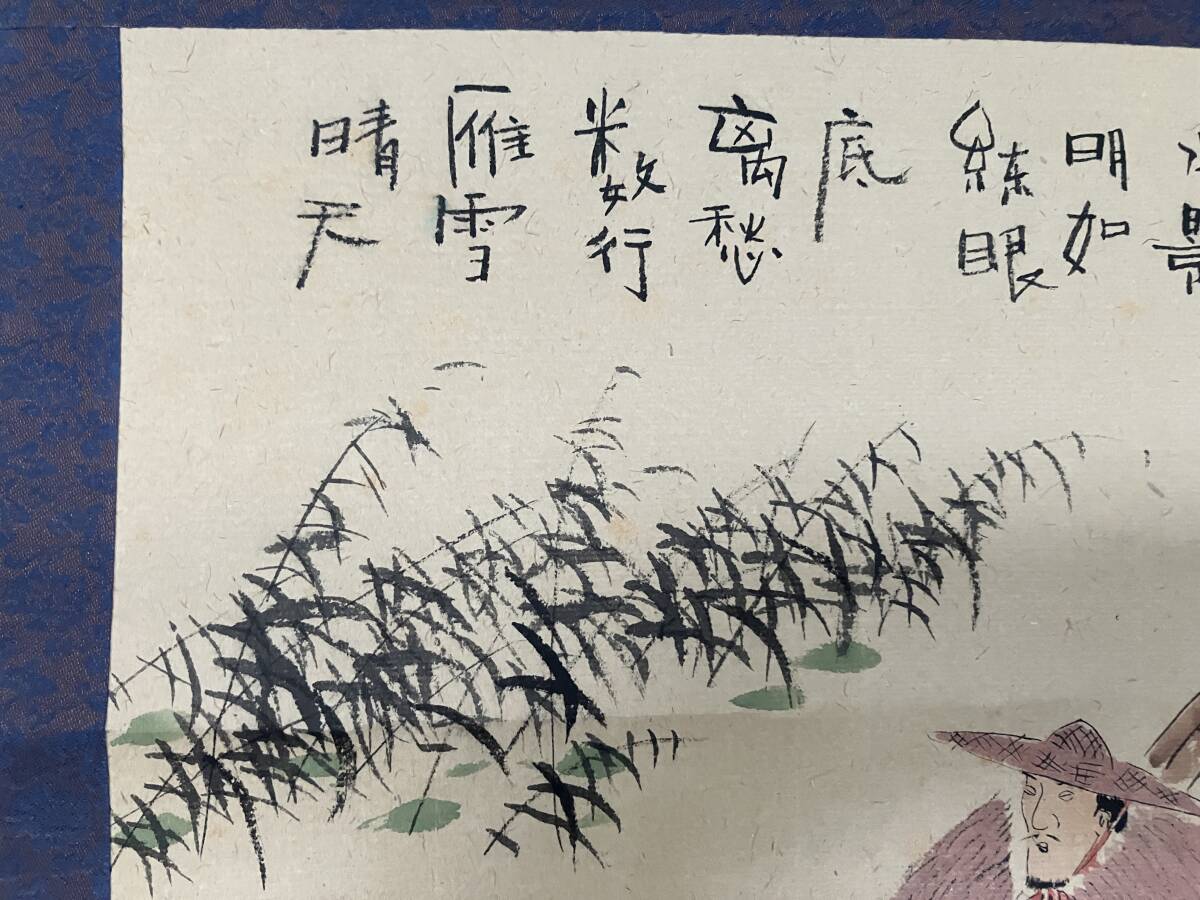 明如
練眼
底
離愁
数行
雁雪
晴天